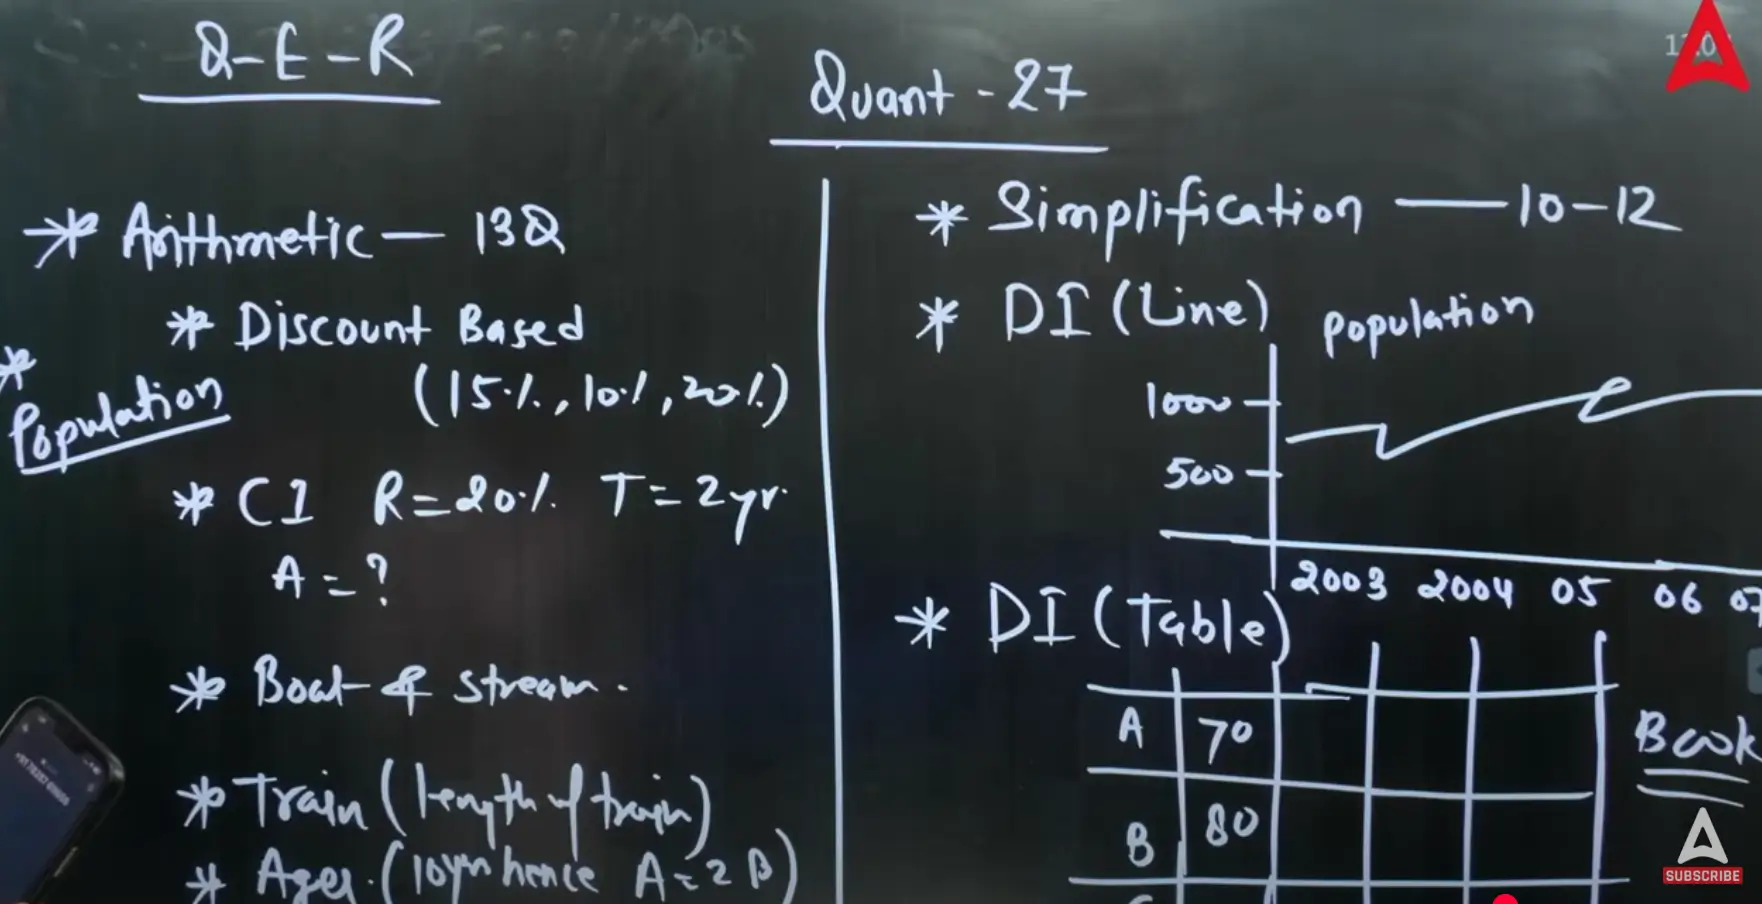 Q-E-R
Quant - 27
* Arithmetic — 13Q
* Discount Based
(15%, 10%, 20%)
* Population
* CI R=20% T=2yr.
A = ?
* Boat & stream.
* Train (length of train)
* Ages. (10yrs hence A=2B)
* Simplification — 10-12
* DI (Line) population
1000
500
2003 2004 05 06 07
* DI (Table)
A 70
Book
B 80
SUBSCRIBE